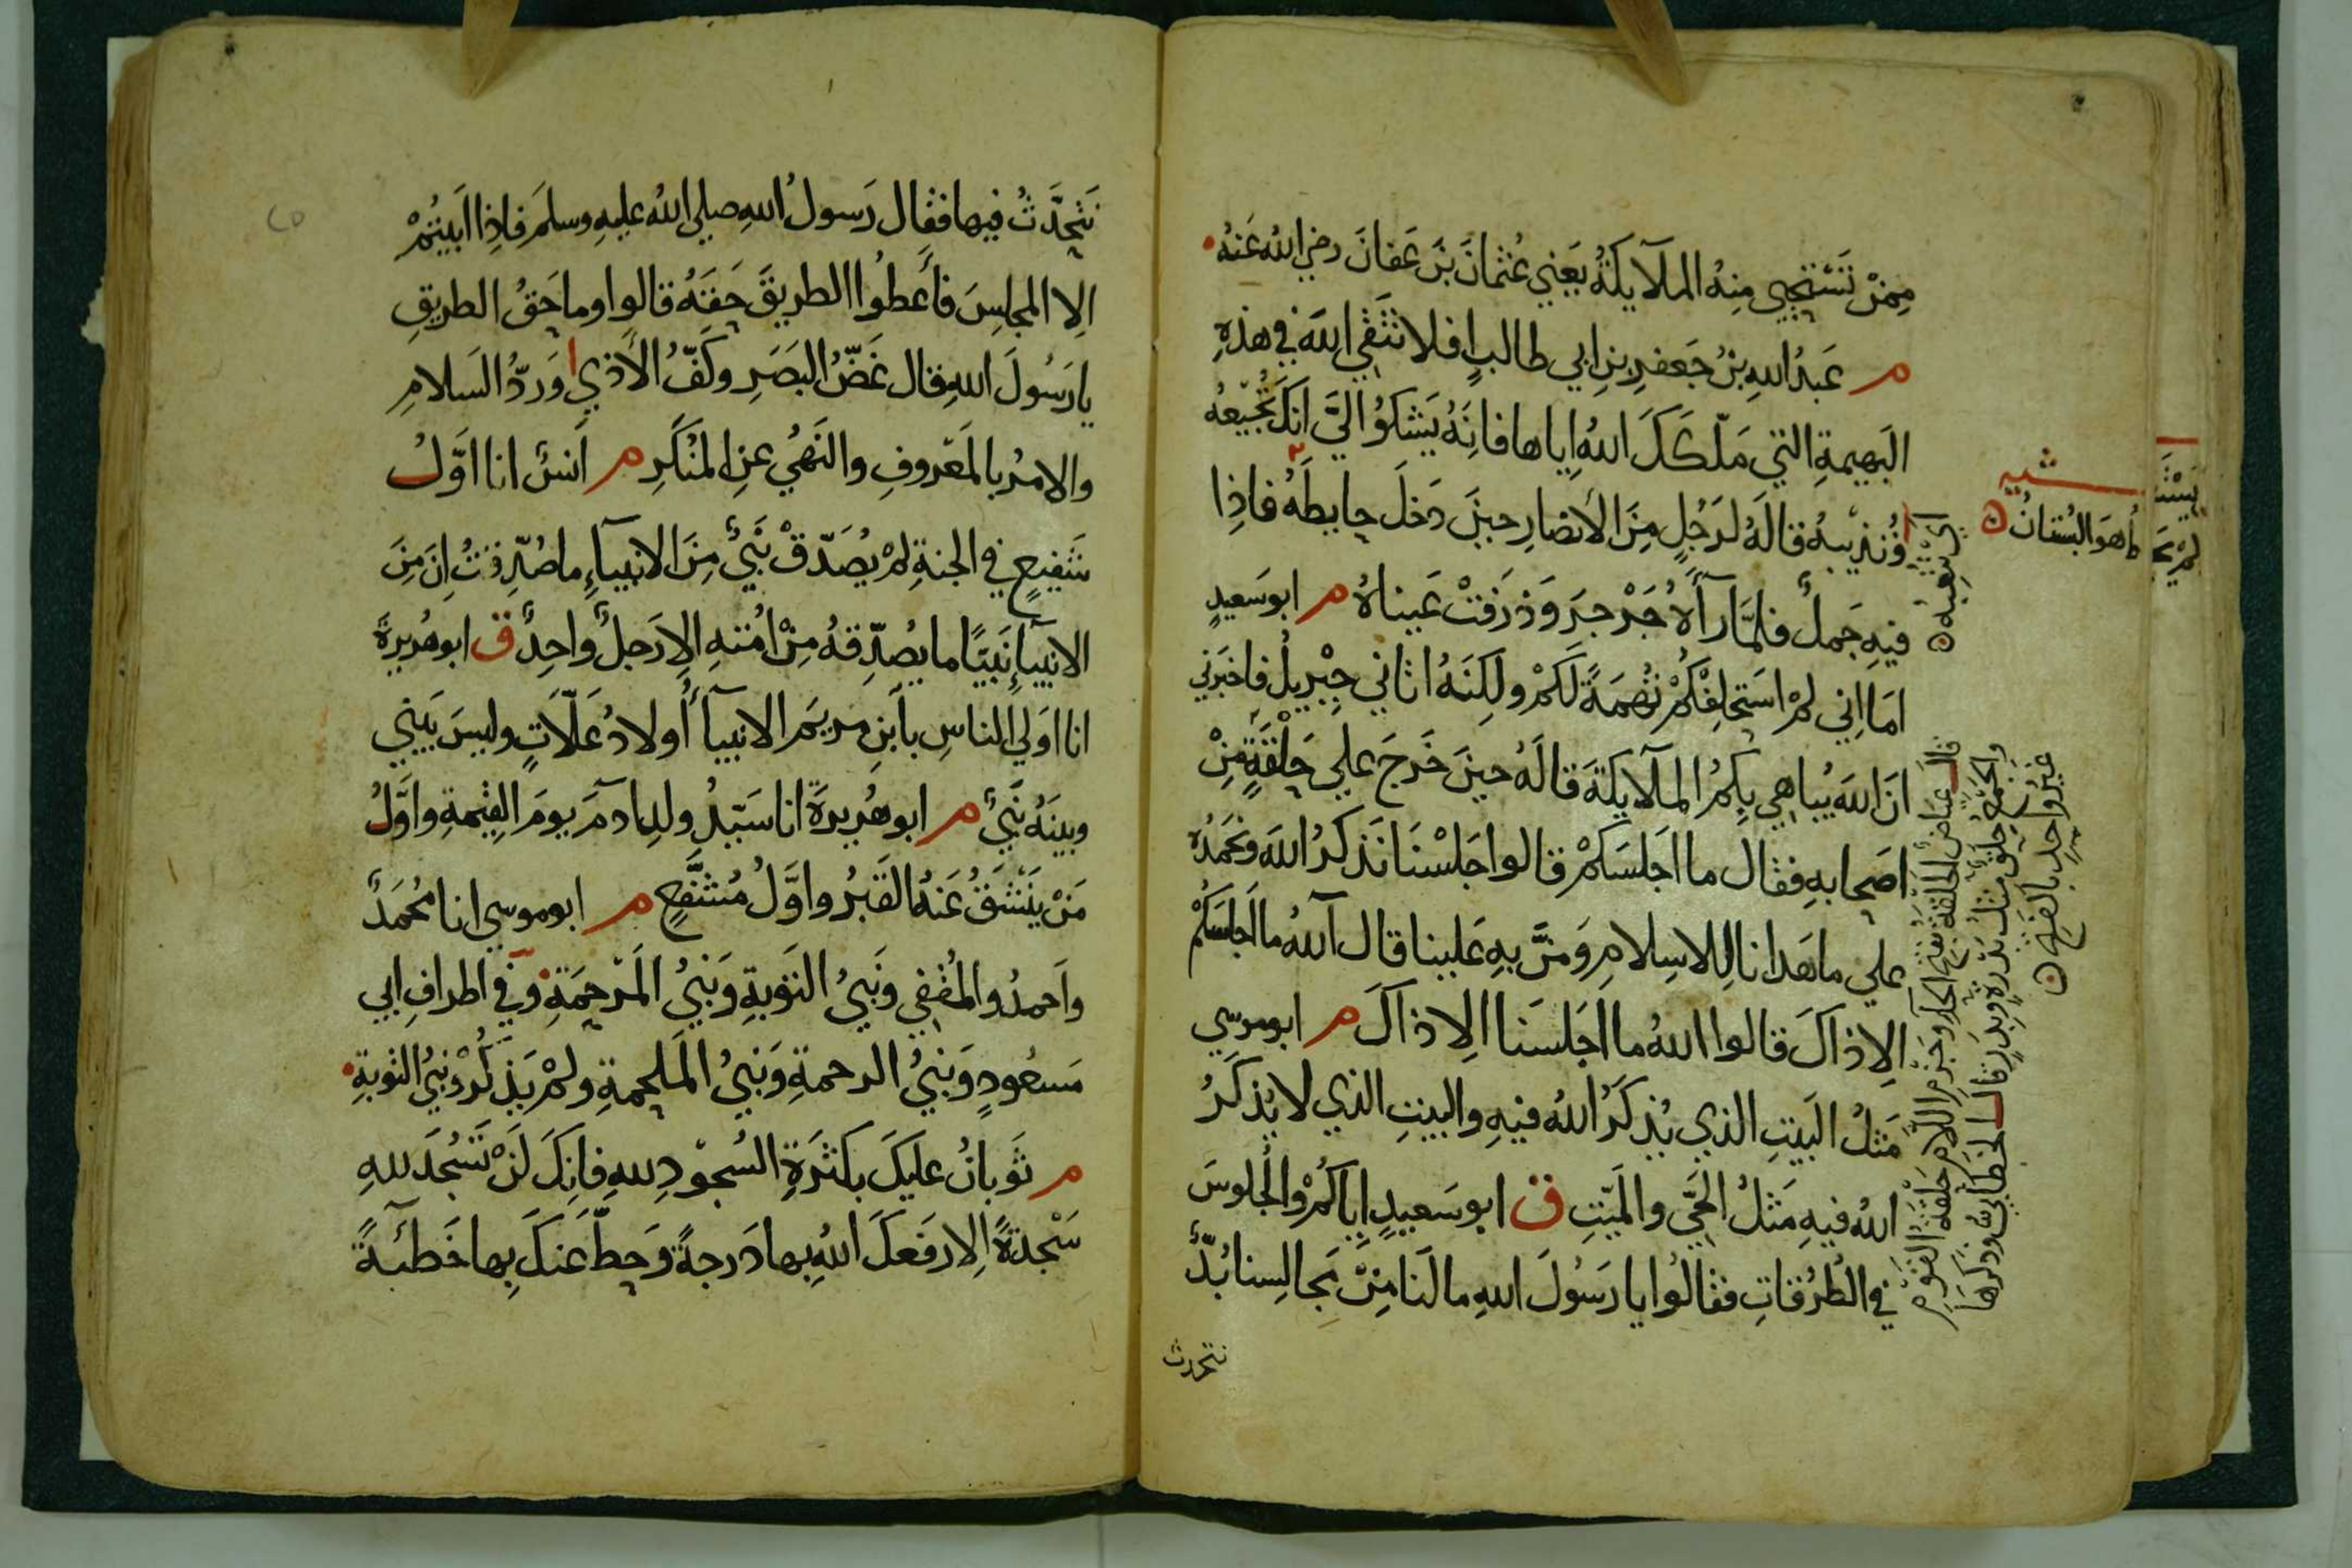 مِمَّنْ تَسْتَحْيِي مِنْهُ الْمَلَآيِكَةُ يَعْنِي عُثْمَانَ بْنَ عَفَّانَ رضي اللهُ عَنْهُ
م عَبْدُ اللهِ بْنُ جَعْفَرِ بْنِ ابي طالبٍ افلا تَتَّقِي اللهَ في هذِهِ
البَهِيمَةِ التي مَلَّكَكَ اللهُ إياها فانَّهُ يَشْكُوُ الَيَّ انكَ تُجِيعُهُ
وَتُدْئِبُهُ قالَهُ لرَجُلٍ مِنَ الأنصارِ حينَ دَخَلَ حايِطَهُ فاذا
فيهِ جَمَلٌ فلمَّا رآهُ جَرْجَرَ وَذَرَفَتْ عَيناهُ م ابو سَعيدٍ
امَا اِني لمْ اسْتَحْلِفْكُمْ تُهَمَةً لَكُمْ ولكِنَّهُ اتاني جِبْرِيلُ فاخبَرَني
انَّ اللهَ يُباهِي بِكُمُ الملآيكةَ قالَهُ حينَ خَرَجَ علي حَلْقَةٍ مِنْ
اصحابهِ فقال ما اجلَسَكُمْ قالوا جَلَسْنَا نَذكُرُ اللهَ ونحمَدُهُ
علي ما هَدانا لِلاسلامِ وَمَنَّ بهِ علينا قال آللهُ ما اَجلَسَكُمْ
الا ذاكَ قالوا اللهُ ما اجَلَسَنا الا ذاكَ م ابو موسي
مَثَلُ البَيتِ الذي يُذكَرُ اللهُ فيهِ والبيتِ الذي لا يُذكَرُ
اللهُ فيهِ مَثَلُ الحَيِّ والمَيّتِ ق ابو سَعيدٍ اِياكُمْ والجُلُوسَ
في الطُرُقاتِ فقالُوا يا رَسُولَ اللهِ ما لَنَا مِنْ مَجالِسِنا بُدٌّ
نتحدث
اي تتعبه
هو البُستانُ
قال عياض الحلقة بفتح الحاء وجزم اللام حَلْقَةُ القَوْمِ
والجمع حلق مثل بَدْرَةٍ وبِدَرٍ قال الخطابي وذكرها
غير واحد بالفتح
نَتَحَدَّثُ فيها فقال رَسولُ اللهِ صلي اللهُ عليهِ وسلمَ فاذا ابَيتُمْ
الا المجلِسَ فأعطُوا الطريقَ حَقَّهُ قالوا وما حَقُّ الطريقِ
يا رَسُولَ اللهِ قال غَضُّ البَصَرِ وكَفُّ الأذي وَرَدُّ السَلامِ
والامرُ بالمعْروفِ والنَهيُ عنِ المنكَرِ م اَنسٌ انا اوَّلُ
شَفِيعٍ في الجنةِ لمْ يُصَدَّقْ نَبيٌّ مِنَ الانبيآءِ ما صُدِّقتُ اِنَّ مِنَ
الانبيآءِ نَبيًّا ما يُصَدِّقهُ مِنْ امَّتهِ الا رَجلٌ واحِدٌ ق ابو هُريرةَ
انا اوْلي الناسِ بابنِ مريَمَ الانبيآءُ أولادُ عَلَّاتٍ وليسَ بَيني
وبينَهُ نَبيٌّ م ابو هُريرةَ انا سَيّدُ ولدِ ادَمَ يومَ القيمةِ واوَّلُ
مَنْ يَنْشَقُّ عَنهُ القَبرُ واوَّلُ مُشَفَّعٍ م ابو موسي انا مُحَمَّدٌ
واَحمدُ والمُقَفّي ونَبيُّ التَوبةِ وَنَبيُّ المَرْحَمَةِ وفي اطرافِ ابي
مَسعُودٍ وَنَبيُّ الرحمةِ وَنَبيُّ المَلحمةِ ولمْ يَذكُرْ نبيُّ التوبةِ
م ثَوبانُ عليكَ بكَثرَةِ السُجُودِ للهِ فانكَ لَنْ تَسْجُدَ للهِ
سَجْدَةً اِلا رفَعكَ اللهُ بها دَرجةً وَحطَّ عَنكَ بِها خَطئَةً